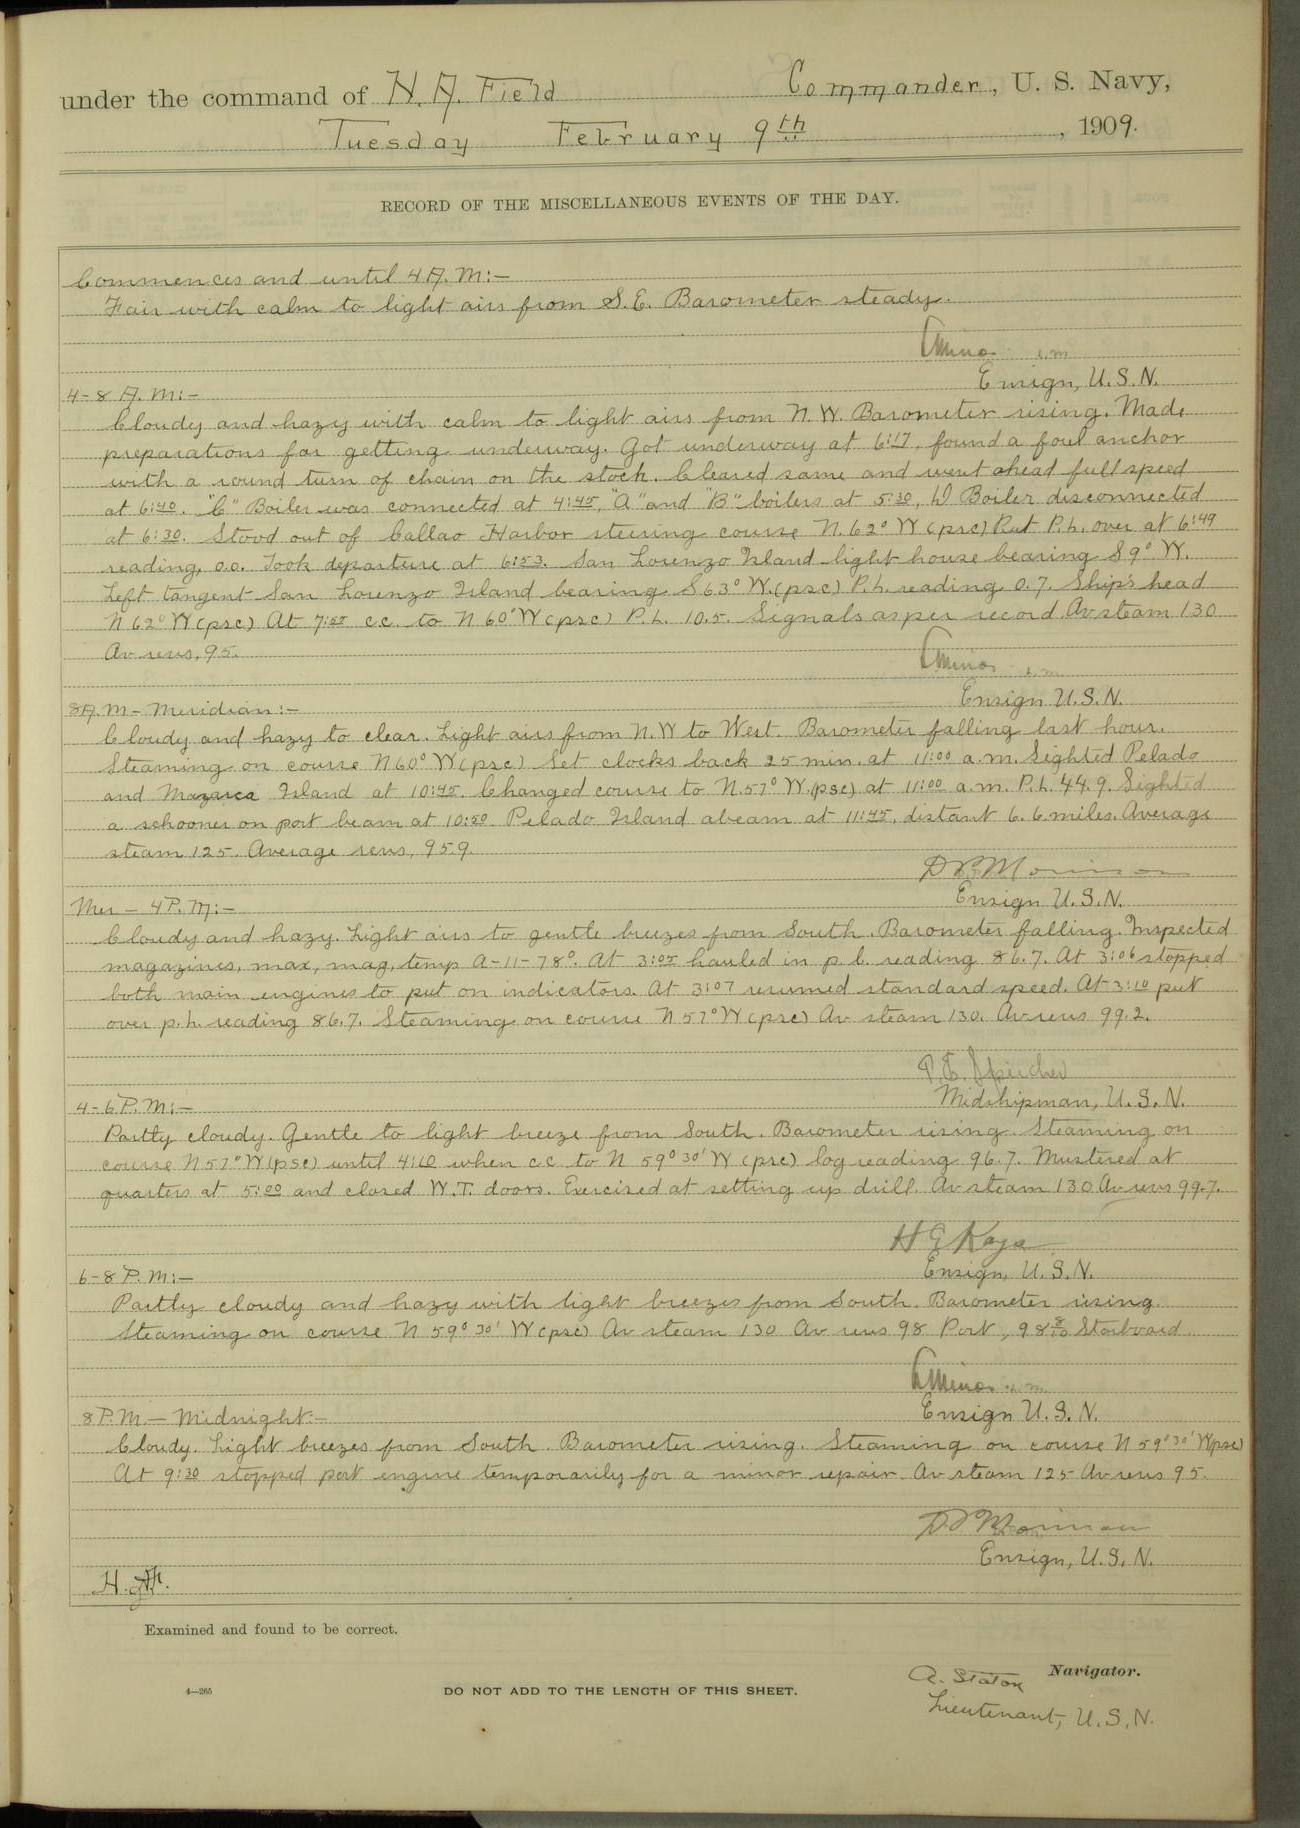 under the command of H. A. Field Commander, U. S. Navy,
Tuesday February 9th, 1909.
RECORD OF THE MISCELLANEOUS EVENTS OF THE DAY.
Commences and until 4 A. M:—
Fair with calm to light airs from S.E. Barometer steady.
Ensign, U.S.N.
4-8 A. M:—
Cloudy and hazy with calm to light airs from N.W. Barometer rising. Made
preparations for getting underway. Got underway at 6:17, found a foul anchor
with a round turn of chain on the stock. Cleared same and went ahead full speed
at 6:40. "C" Boiler was connected at 4:45, "A" and "B" boilers at 5:30, D Boiler disconnected
at 6:30. Stood out of Callao Harbor steering course N.62° W (psc) Put P.L. over at 6:49
reading, 0.0. Took departure at 6:53. San Lorenzo Island light house bearing S 9° W.
Left tangent San Lorenzo Island bearing S 63° W. (psc) P.L. reading 0.7. Ship's head
N 62° W (psc) At 7:05 c.c. to N 60° W (psc) P.L. 10.5. Signals as per record. Av steam 130
Av revs, 95.
Ensign U.S.N.
8 A. M — Meridian:—
Cloudy and hazy to clear. Light airs from N.W to West. Barometer falling last hour.
Steaming on course N 60° W (psc) Set clocks back 25 min. at 11:00 a.m. Sighted Pelado
and Mazarca Island at 10:45. Changed course to N.57° W. (psc) at 11:00 a.m. P.L. 44.9. Sighted
a schooner on port beam at 10:50. Pelado Island abeam at 11:45, distant 6.6 miles. Average
steam 125. Average revs, 95.9.
D P Morrison
Ensign U.S.N.
Mer — 4 P. M:—
Cloudy and hazy. Light airs to gentle breezes from South. Barometer falling. Inspected
magazines, max, mag, temp A-11-78°. At 3:05 hauled in p.l. reading 86.7. At 3:06 stopped
both main engines to put on indicators. At 3:07 resumed standard speed. At 3:10 put
over p.l. reading 86.7. Steaming on course N 57° W (psc) Av steam 130. Av revs 99.2.
P. E. Speicher
Midshipman, U.S.N.
4-6 P. M:—
Partly cloudy. Gentle to light breeze from South. Barometer rising. Steaming on
course N 57° W (psc) until 4:10 when c.c. to N 59° 30' W (psc) log reading 96.7. Mustered at
quarters at 5:00 and closed W.T. doors. Exercised at setting up drill. Av steam 130 Av revs 99.7.
Ensign, U.S.N.
6-8 P. M:—
Partly cloudy and hazy with light breezes from South. Barometer rising.
Steaming on course N 59° 30' W (psc) Av steam 130 Av revs 98 Port, 98 8/10 Starboard
Ensign U.S.N.
8 P. M — Midnight:—
Cloudy. Light breezes from South. Barometer rising. Steaming on course N 59° 30' W (psc)
At 9:30 stopped port engine temporarily for a minor repair. Av steam 125 Av revs 95.
D P Morrison
Ensign, U.S.N.
Examined and found to be correct.
A. Staton Navigator.
4—265 DO NOT ADD TO THE LENGTH OF THIS SHEET.
Lieutenant, U.S.N.